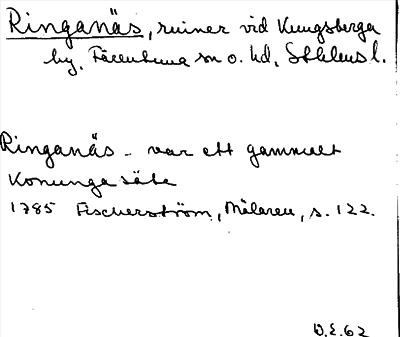 Ringanäs, ruiner vid Kungsberga
by. Färentuna sn o. hd, Sthlms l.
Ringanäs - var ett gammalt
Konunga säte
1785 Fischerström, Mälaren, s. 122.
D.E.62